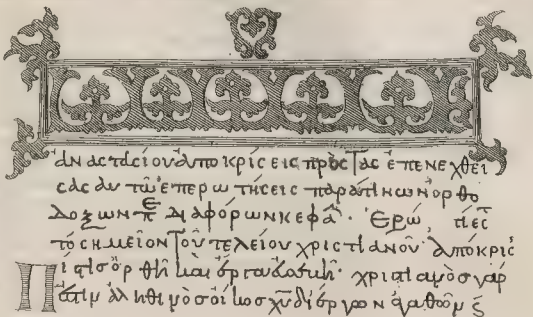 ἀναστασίου ἀποκρίσεις πρὸς τὰς ἐπενεχθεί
σας αυτῶ ἐπερωτήσεις παρά τινων ὀρθο
δόξων πε διαφόρων κεφα. Ἐρώ, τί ες
τὸ σημεῖον τοῦ τελείου χριστιανοῦ. ἀποκρις
Πίστις ὀρθὴ καὶ ἔργα
ἐστιν ἀληθινὸς οἶκος χυ δι' ἔργων ἀγαθῶν